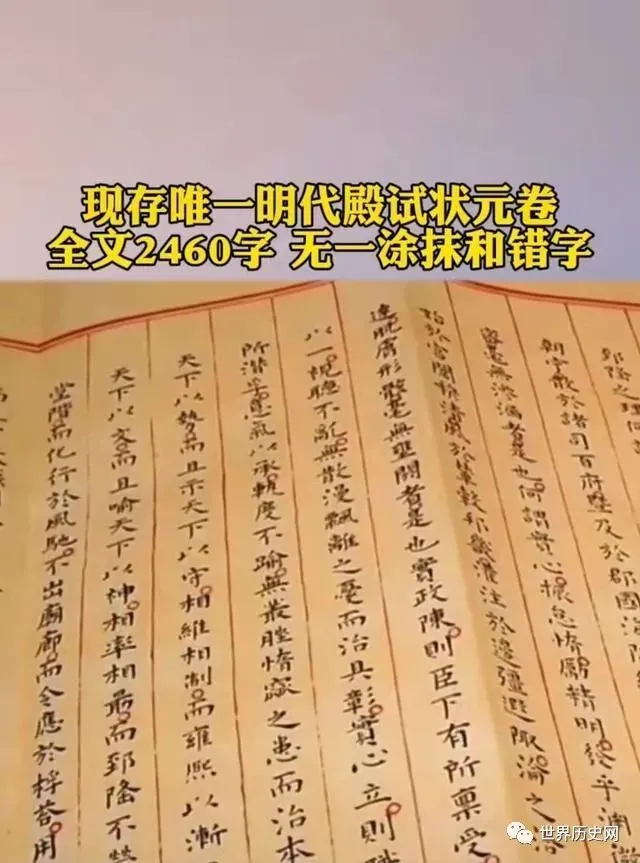 现存唯一明代殿试状元卷
全文2460字 无一涂抹和错字
郅隆之理何
朝宇散於諸司百府暨及於郡國海隅
容毫無滲漏者是也何謂實心振怠惰勵精明發乎淵
風於輦轂邦畿灌注於邊疆遐陬淪之
達肌膚形骸毫無壅閼者是也實政陳則臣下有所稟受
以一視聽不亂無散漫飄離之憂而治具彰實心立則職
所潛孚意氣以承軌度不踰無叢脞惰窳之患而治本
天下以勢而且示天下以守相維相制而雍熙以漸
天下以文而且喻天下以神相率相最而郅隆不
堂階而化行於風馳不出廟廊而令應於桴荅用
世界历史网